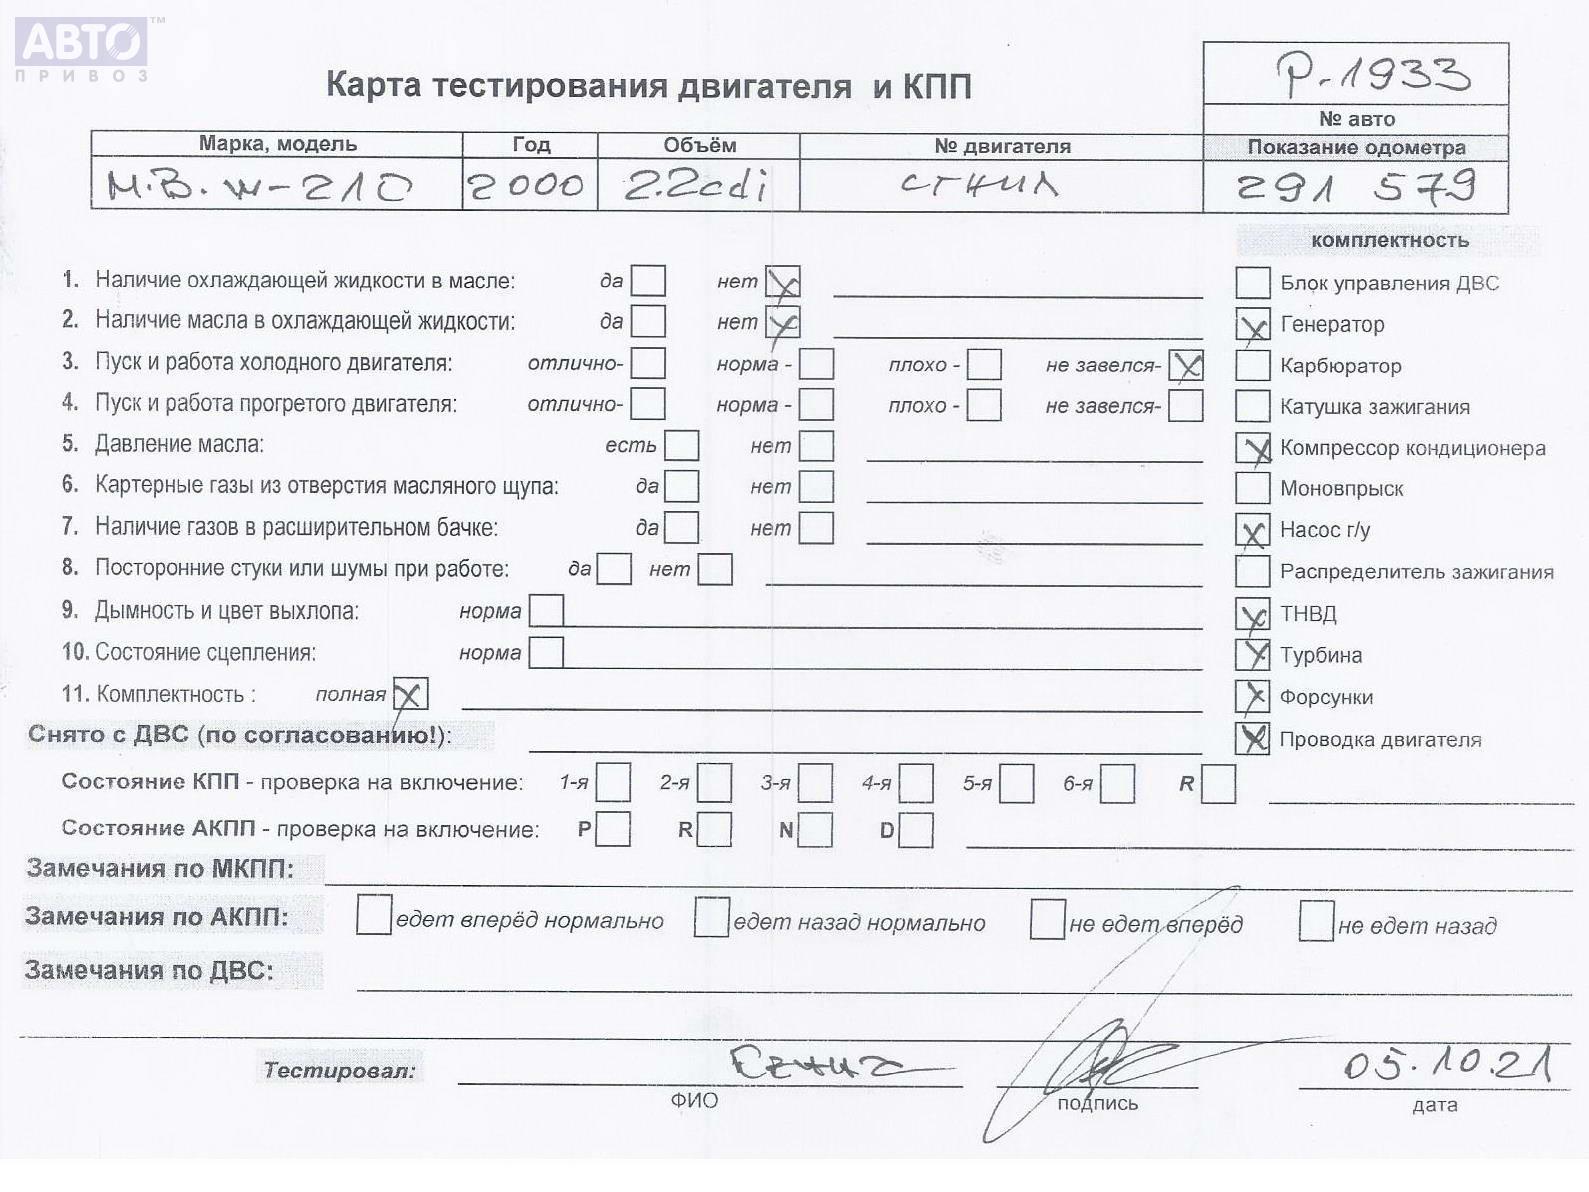 АВТО™
ПРИВОЗ
Карта тестирования двигателя и КПП
Р-1933
№ авто
Марка, модель Год Объём № двигателя Показание одометра
М.В. W-210 2000 2.2cdi сгнил 291 579
комплектность
1. Наличие охлаждающей жидкости в масле: да нет
Блок управления ДВС
2. Наличие масла в охлаждающей жидкости: да нет
Генератор
3. Пуск и работа холодного двигателя: отлично- норма - плохо - не завелся-
Карбюратор
4. Пуск и работа прогретого двигателя: отлично- норма - плохо - не завелся-
Катушка зажигания
5. Давление масла: есть нет
Компрессор кондиционера
6. Картерные газы из отверстия масляного щупа: да нет
Моновпрыск
7. Наличие газов в расширительном бачке: да нет
Насос г/у
8. Посторонние стуки или шумы при работе: да нет
Распределитель зажигания
9. Дымность и цвет выхлопа: норма
ТНВД
10. Состояние сцепления: норма
Турбина
11. Комплектность : полная
Форсунки
Снято с ДВС (по согласованию!):
Проводка двигателя
Состояние КПП - проверка на включение: 1-я 2-я 3-я 4-я 5-я 6-я R
Состояние АКПП - проверка на включение: P R N D
Замечания по МКПП:
Замечания по АКПП: едет вперёд нормально едет назад нормально не едет вперёд не едет назад
Замечания по ДВС:
Тестировал: 05.10.21
ФИО подпись дата